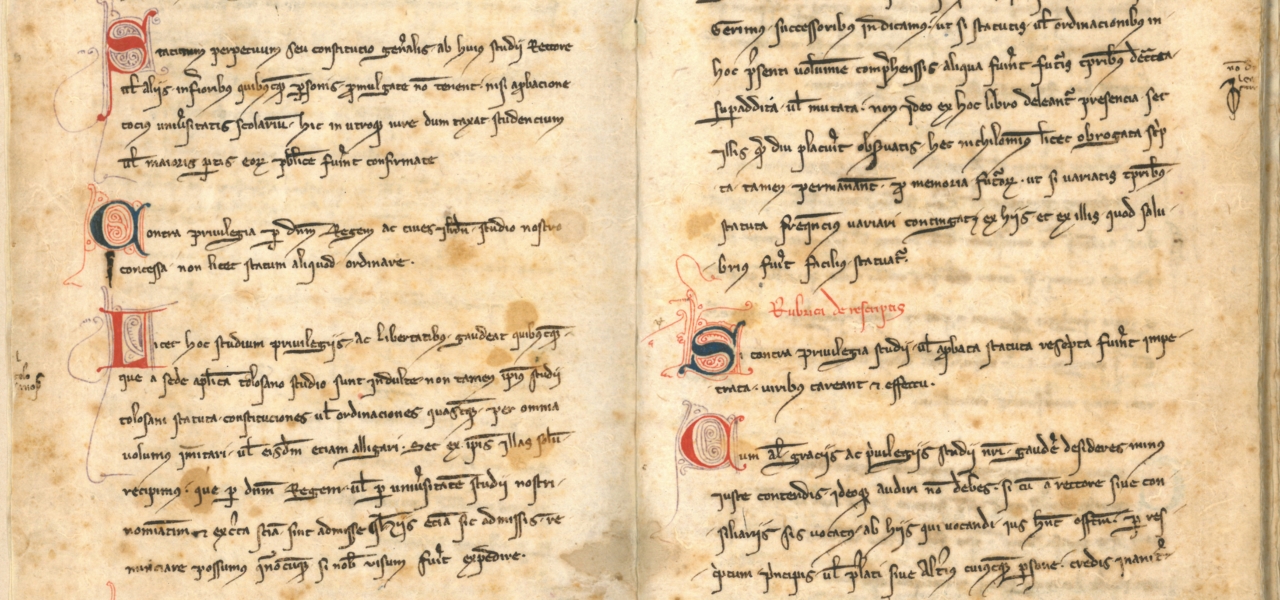 Statutum perpetuum seu constitucio gen̄alis ab huiꝰ studii Rectore
ul̄ aliis inferioribus quibuscūqꝫ ꝑsonis ꝓmulgate nō tenent nisi aꝓbacione
tocius univ̄sitatis scolariū hic in utroqꝫ iure dum taxat studencium
ul̄ maioris ꝑtis eoꝝ publice fuīnt confirmate
Contra privilegia ꝑ dn̄m Regem ac cives studio nostro
concessa non licet statum aliquod ordinare.
Licet hoc studium privilegiis ac libertatibꝰ gaudeat quibuscūqꝫ
que a sede ap̄lica tolosano studio sunt indulte non tamen ip̄ius studii
tolosani statuta constituciones ul̄ ordinaciones quascūqꝫ per omnia
volumꝰ imitari ul̄ eisdem eciam alligari. Set ex ip̄is illas solū
recipimus que ꝑ dn̄m Regem ul̄ ꝑ univ̄sitatē studii nostri
nominatim ⁊ ex certa sciā sint admisse eciā sic admissis re
nunciare possumꝰ si nob̄ visum fuīt expedire.
Gerimꝰ successoribus indicamꝰ ut si statutis ul̄ ordinacionibꝰ in
hoc p̄senti volumine comp̄hensis aliqua fuīnt futuris tꝑribꝰ
suꝑaddita ul̄ mutata non ideo ex hoc libro deleant̄ presencia set
illis ꝑ diu placuīt obs̄vatis hec nichilominꝰ licet obrogata sc̄p
ta tamen ꝑmaneant ꝓ memoria futuroꝝ ut si variatis tꝑribꝰ
statuta frequencius variari contingat ex hiis et ex illis quod salu
brius fuīt facilius statuat̄.
Rubrica de rescriptis
Si contra privilegia studii ul̄ aꝓbata statuta rescripta fuīnt impe
trata viribus careant ⁊ effectu.
Cum al̄ graciis ac p̄vilegiis studii nr̄i gaudere desideres minus
iuste contendis ideoqꝫ audiri nō debes si cū a rectore sive con
siliariis sis vocatꝰ ab hiis qui vocandi ius hn̄t ꝑ res
c̄ptum p̄ncipis ul̄ p̄lati sive alteriꝰ cuiuscūqꝫ ꝑsone credis